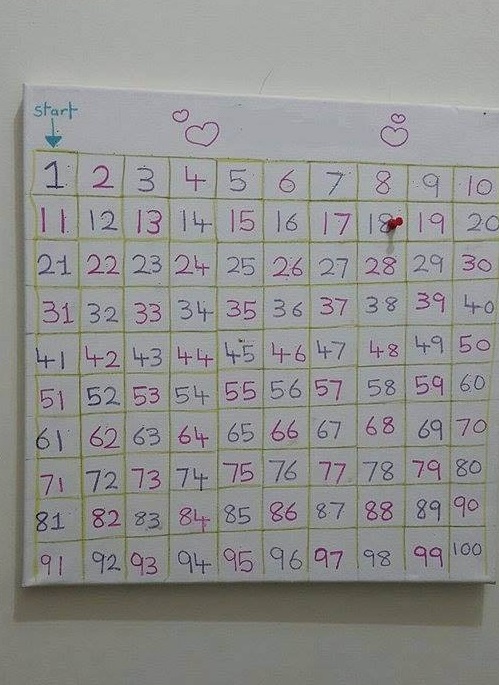 start
1 2 3 4 5 6 7 8 9 10
11 12 13 14 15 16 17 18 19 20
21 22 23 24 25 26 27 28 29 30
31 32 33 34 35 36 37 38 39 40
41 42 43 44 45 46 47 48 49 50
51 52 53 54 55 56 57 58 59 60
61 62 63 64 65 66 67 68 69 70
71 72 73 74 75 76 77 78 79 80
81 82 83 84 85 86 87 88 89 90
91 92 93 94 95 96 97 98 99 100